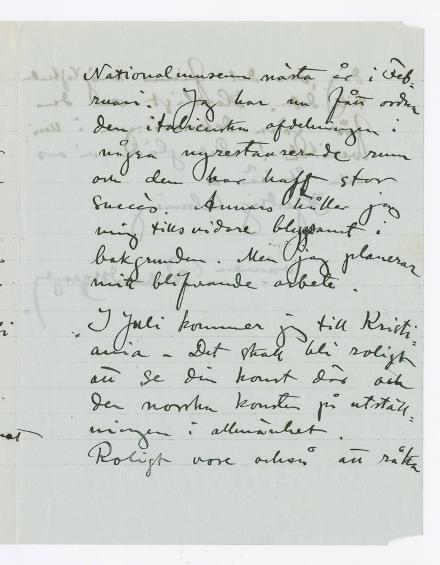 Nationalmuseum nästa år i Feb-
ruari. Jag har nu fått ordna
den italienska afdelningen i
några nyrestaurerade rum
och den har haft stor
succès. Annars håller jag
mig tills vidare blygsamt i
bakgrunden. Men jag planerar
mitt blifvande arbete.
I Juli kommer jag till Kristi-
ania – Det skall bli roligt
att se din konst där och
den norska konsten på utställ-
ningen i allmänhet.
Roligt vore också att råka